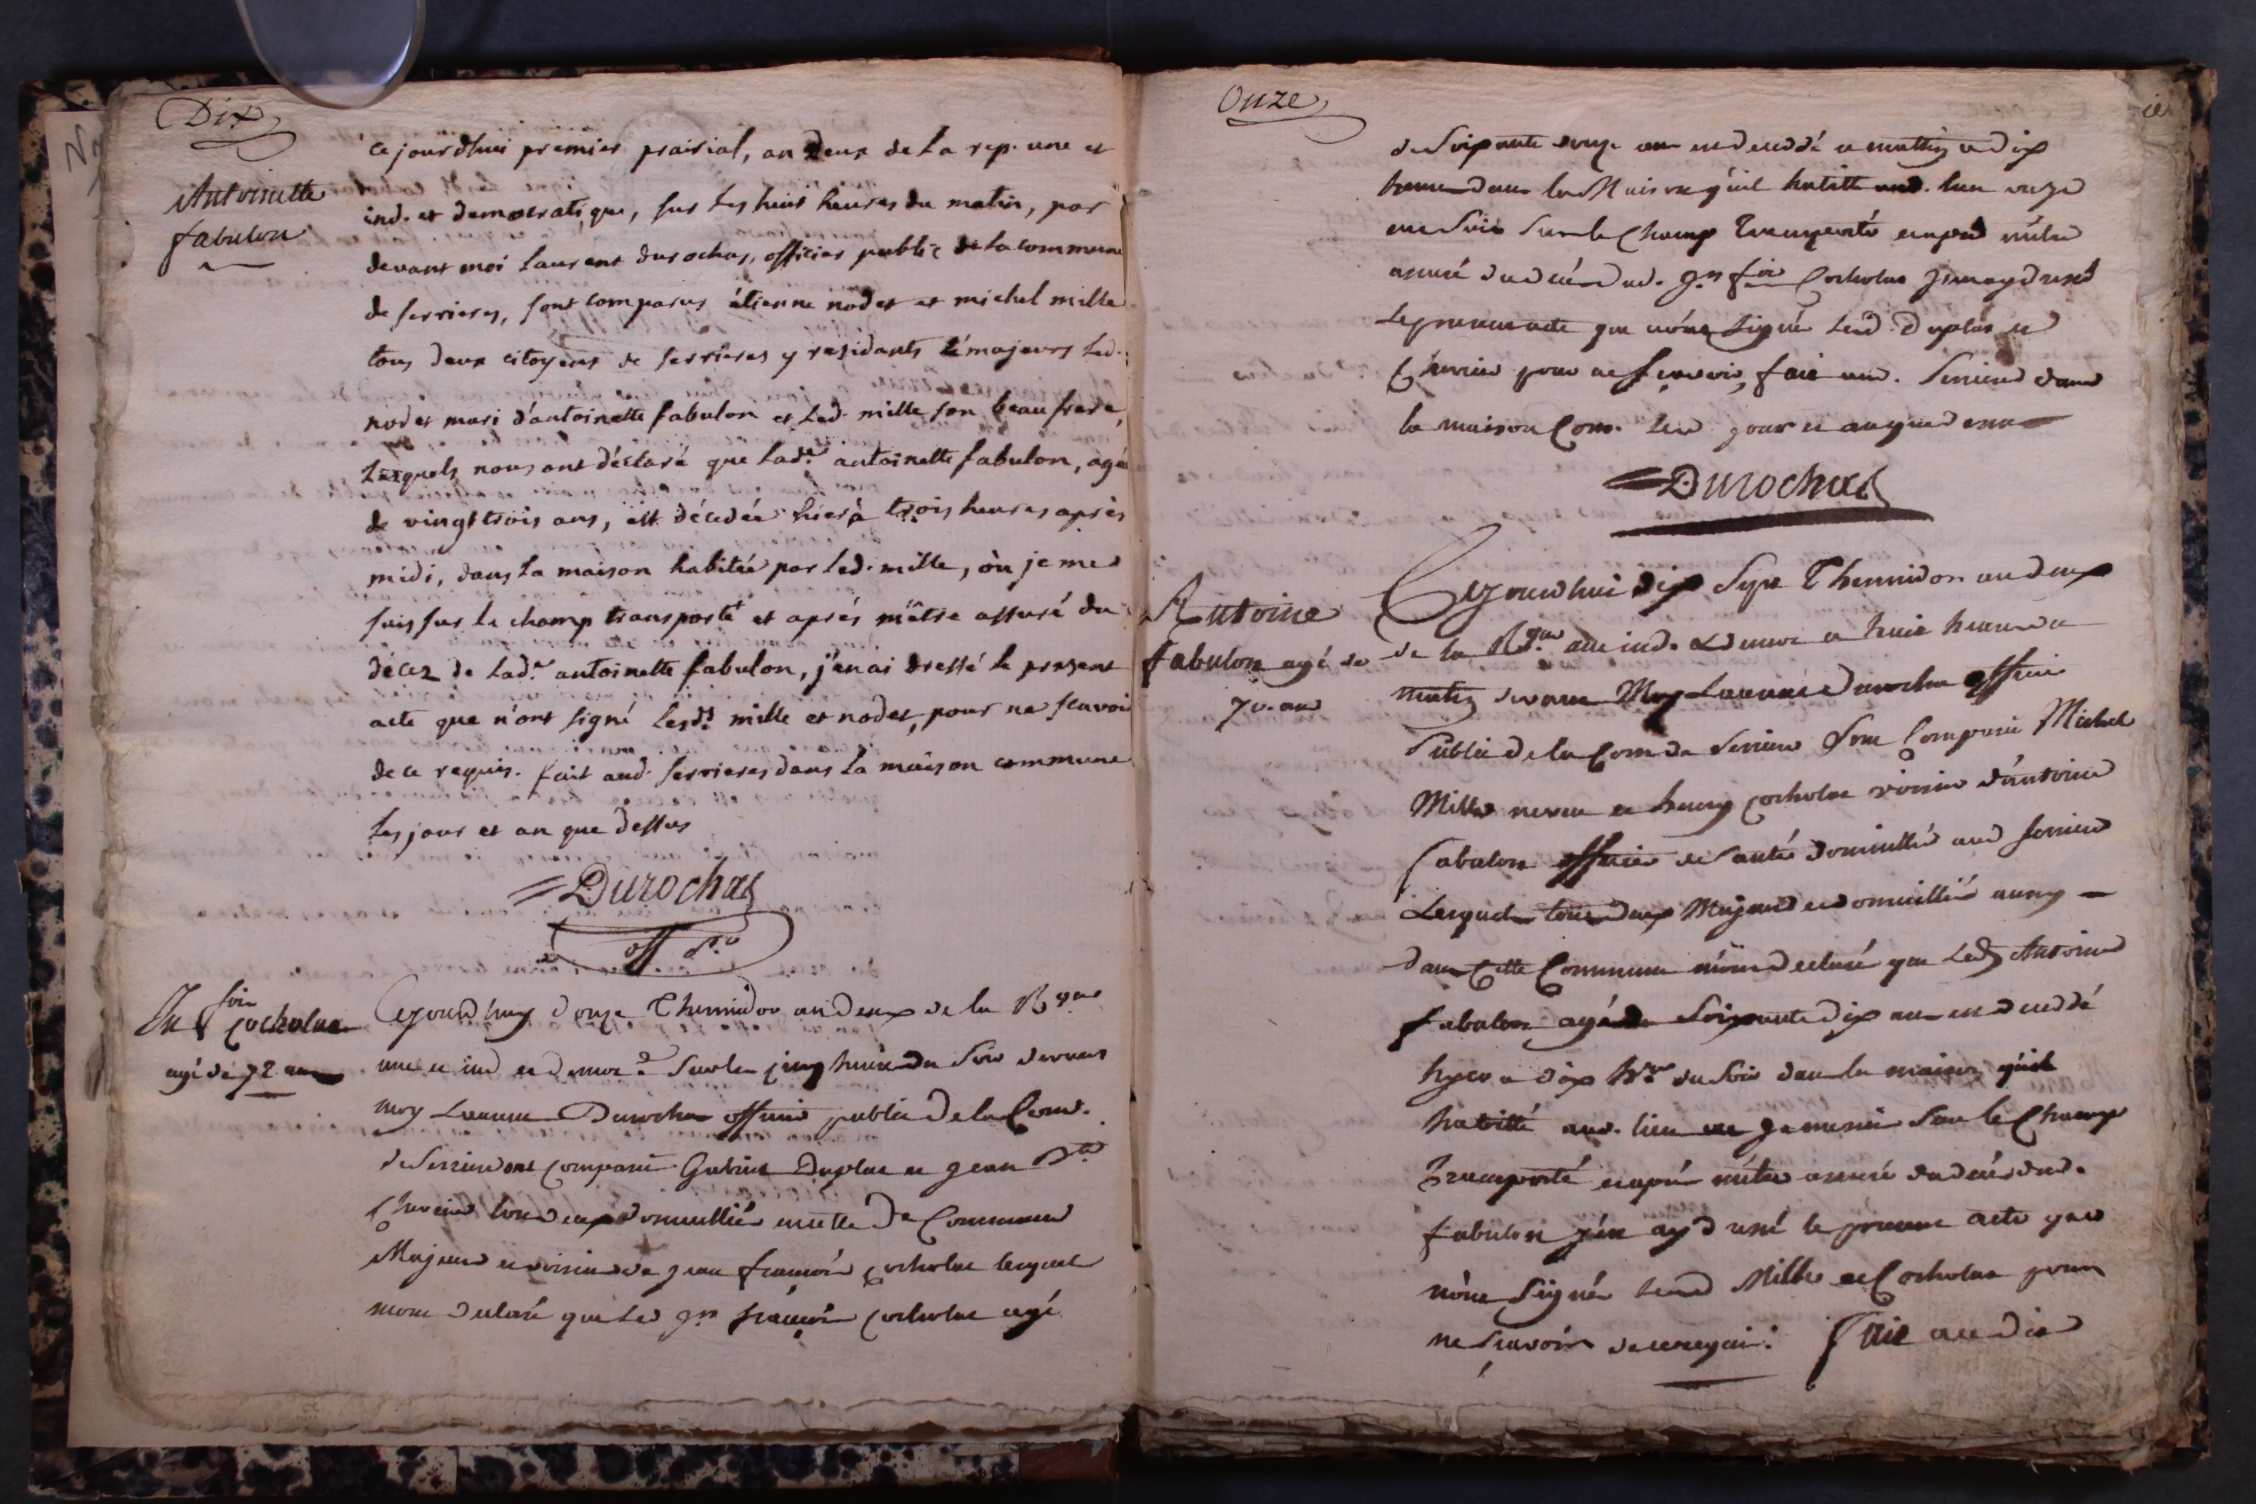 Dix
Antoinette
fabulon
ce jourdhui premier prairial, an deux de la rep. une et
ind. et democratique, sur les huit heures du matin, par
devant moi laurent durochas, officier public de la commune
de serrieres, sont comparus étienne nodet et michel mille
tous deux citoyens de serrieres y residants et majeurs led.
nodet mari d'antoinette fabulon et led. mille son beau frere,
lesquels nous ont déclaré que lad.e antoinette fabulon, agée
de vingt trois ans, est décedée hier à trois heures après
midi, dans la maison habitée par led. mille, où je me
suis sur le champ transporté et après m'être assuré du
décez de lad.e antoinette fabulon, j'en ai dressé le present
acte que n'ont signé lesd.s mille et nodet, pour ne scavoir
de ce requis. fait aud. serrieres dans la maison commune
les jour et an que dessus
Durochas
off p.c
Jn foin
cocholas
agé de 72 ans
Cejourd'huy douze Thermidor an deux de la Rque
une et ind et democ. sur les cinq heures du soir devant
moy Laurent Durochas officier public de la Com.
de Serrieres ont comparu Gabriel Duplas et jean Bte
Chuvin tous deux domicilliés en cette De Commune
Majeurs et voisins de jean françois cocholas lesquels
m'ont declaré que led jn françois cocholas agé
Onze
de soixante douze ans est deceddé ce mattin a dix
heures dans la Maison qu'il habitte aud. lieu ou je
me suis sur le Champ Transporté et après m'être
assuré du décés dud. jn foin Cocholas j'en ay dressé
le present acte que n'ont signé lesd. Duplas et
Chuvin pour ne sçavoir, fait aud. Serrieres dans
la maison Com. led. jour et an que dessus
Durochas
Antoine
fabulon agé de
70. ans
Cejourdhui dix sept Thermidor an deux
de la Rque une ind. et democ a huit heures du
matin devant Moy Laurent Durochas officier
Public de la Com de Serrieres sont Comparu Michel
Mille neveu et henry cocholas voisin d'antoine
fabulon officier de santé domicillié aud serrieres
Lesquels tous deux Majeurs et domicilliés aussy
dans Cette Commune m'ont declaré que Led. Antoine
fabulon agé de soixante dix ans est deceddé
hyer a dix h.res du soir dans la maison qu'il
habitté aud. lieu ou je me suis sur le Champ
Transporté et après m'être assuré du décés dud.
fabulon j'en ay dressé le present acte que
n'ont signés lesd Mille et Cocholas pour
ne sçavoir de ce requis. Fait audit